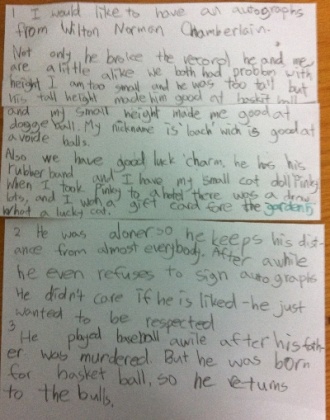 1 I would like to have an autographs
from Wilton Norman Chamberlain.
Not only he broke the record he and me
are a little alike we both had problom with
height I am too small and he was too tall but
his tall height made him good at baskit ball
and my small height made me good at
dogge ball. My nickname is wich is good at
avoide balls.
Also we have good luck charm, he has his
rubber band and I have my small cat doll Pinky
When I took Pinky to a hotel there was a
and I won a gift card fore the gardens
What a lucky cat.
2 He was aloner so he keeps his dist-
ance from almost everybody. After awhile
he even refuses to sign autographs
He didn't care if he is liked-he just
wanted to be respected
3
He played baseball awile after his fath-
er was murdered. But he was born
for basket ball, so he returns
to the bulls.